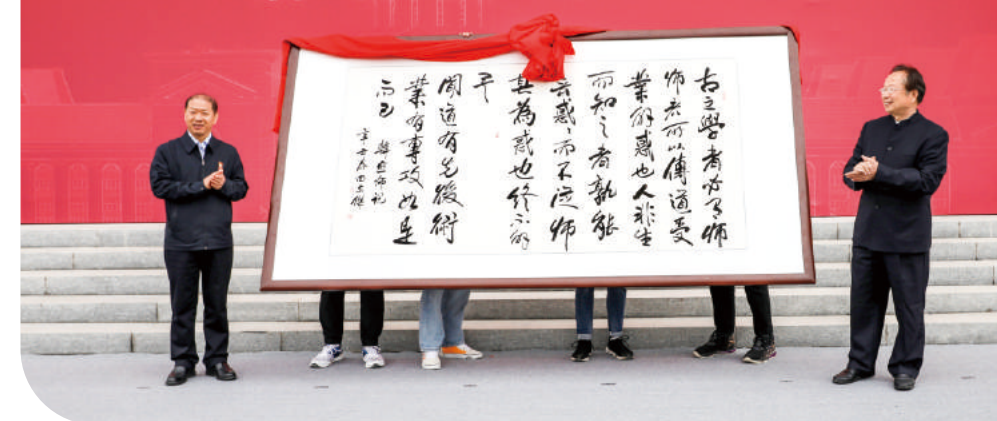 古之學者必有師
師者所以傳道受
業解惑也人非生
而知之者孰能
无惑〻而不從師
其為惑也終不解
矣
聞道有先後術
業有專攻如是
而已
韓愈師說
辛丑春田